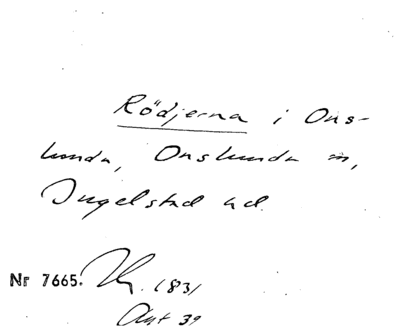 Rödjerna i Ons-
lunda, Onslunda sn,
Ingelstad hd.
Nr 7665. 1831
Akt 39